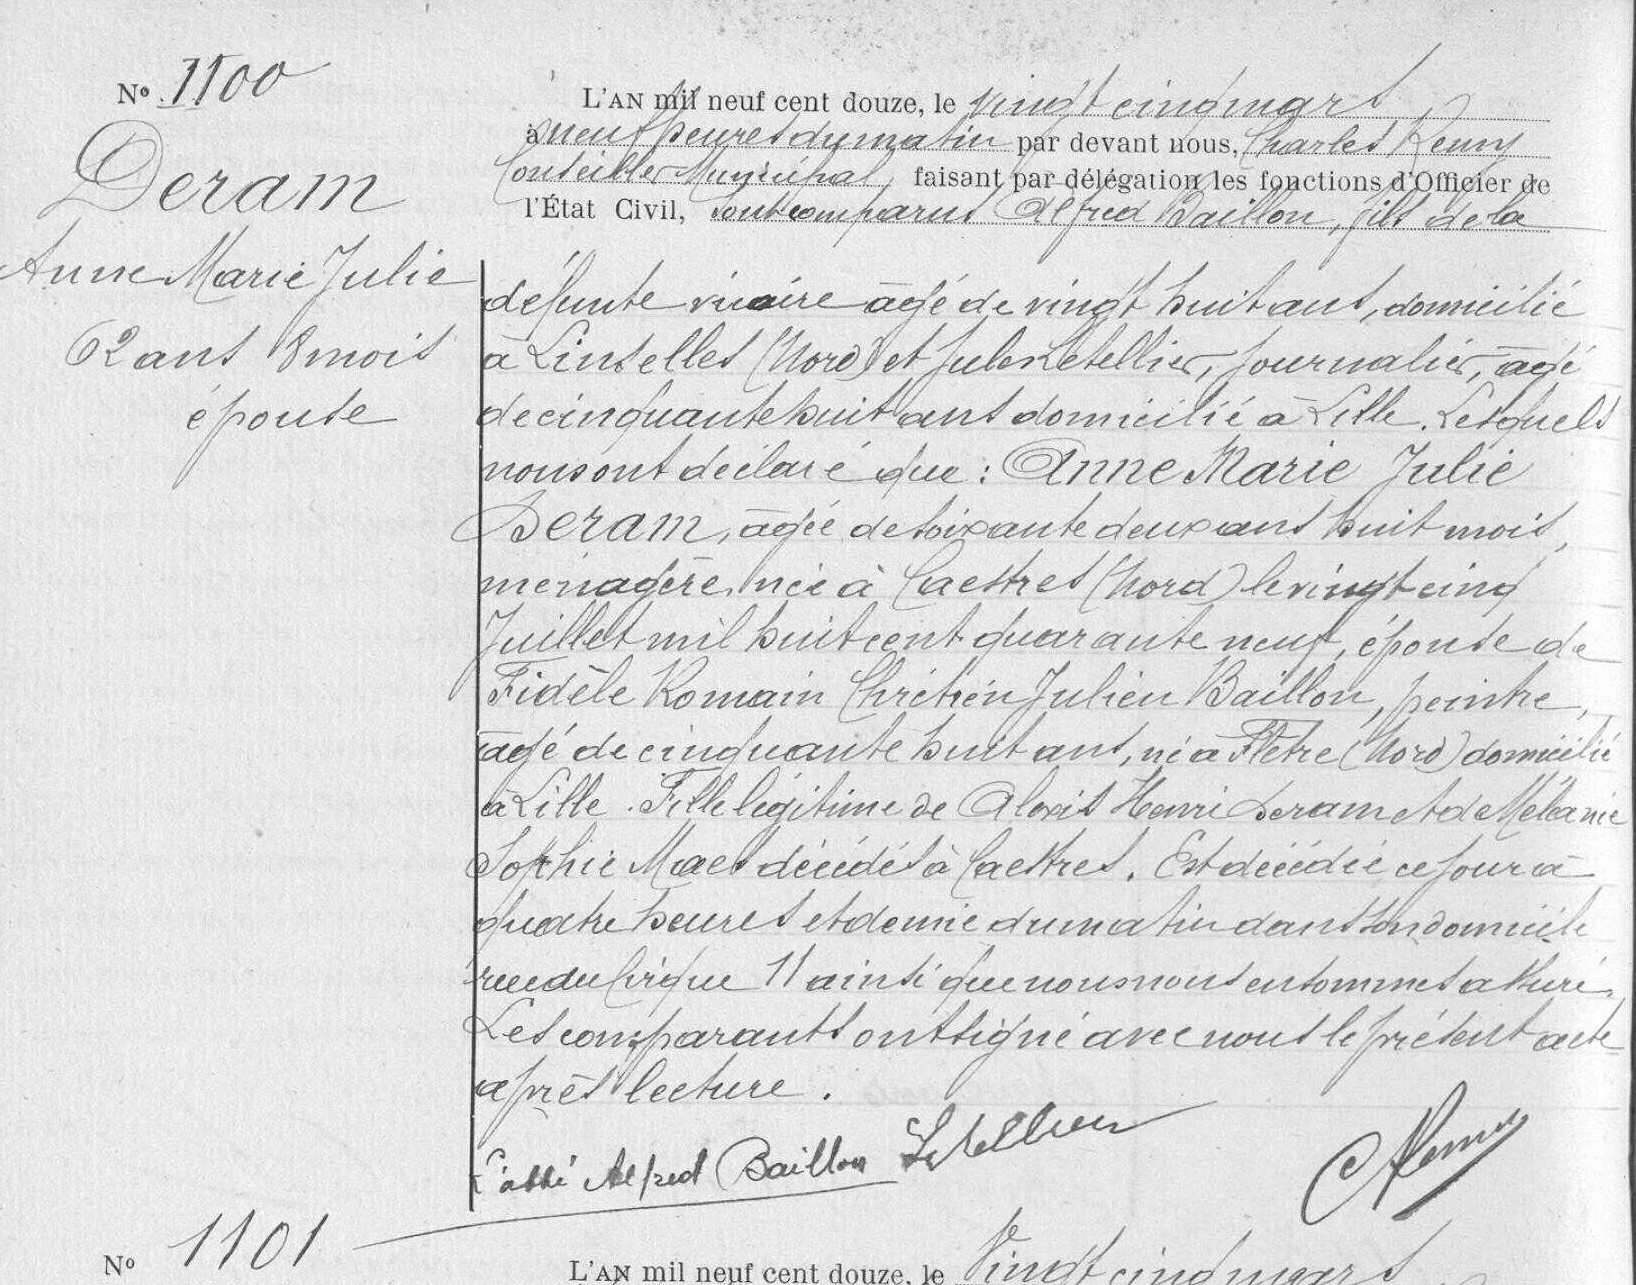 N° 1100
Deram
Anne Marie Julie
62 ans 8 mois
épouse
L'AN mil neuf cent douze, le vingt cinq mars
à neuf heures du matin par devant nous, Charles Remy
Conseiller Municipal, faisant par délégation les fonctions d'Officier de
l'État Civil, sont comparus Alfred Baillon, fils de la
défunte vicaire âgé de vingt huit ans, domicilié
à Linselles (Nord) et Jules Letellier, journalier, âgé
de cinquante huit ans domicilié à Lille. Lesquels
nous ont déclaré que : Anne Marie Julie
Deram, âgée de soixante deux ans huit mois,
ménagère, née à Caestres (Nord) le vingt cinq
Juillet mil huit cent quarante neuf, épouse de
Fidèle Romain Chrétien Julien Baillon, peintre,
âgé de cinquante huit ans, né à Flêtre (Nord) domicilié
à Lille. Fille légitime de Alexis Henri Deram et de Mélanie
Sophie Maes décédés à Caestres. Est décédée ce jour à
quatre heures et demie du matin dans son domicile
rue du Cirque 11 ainsi que nous nous en sommes assuré.
Les comparants ont signé avec nous le présent acte
après lecture.
L'abbé Alfred Baillon Letellier CRemy
N° 1101
L'AN mil neuf cent douze, le Vingt cinq mars